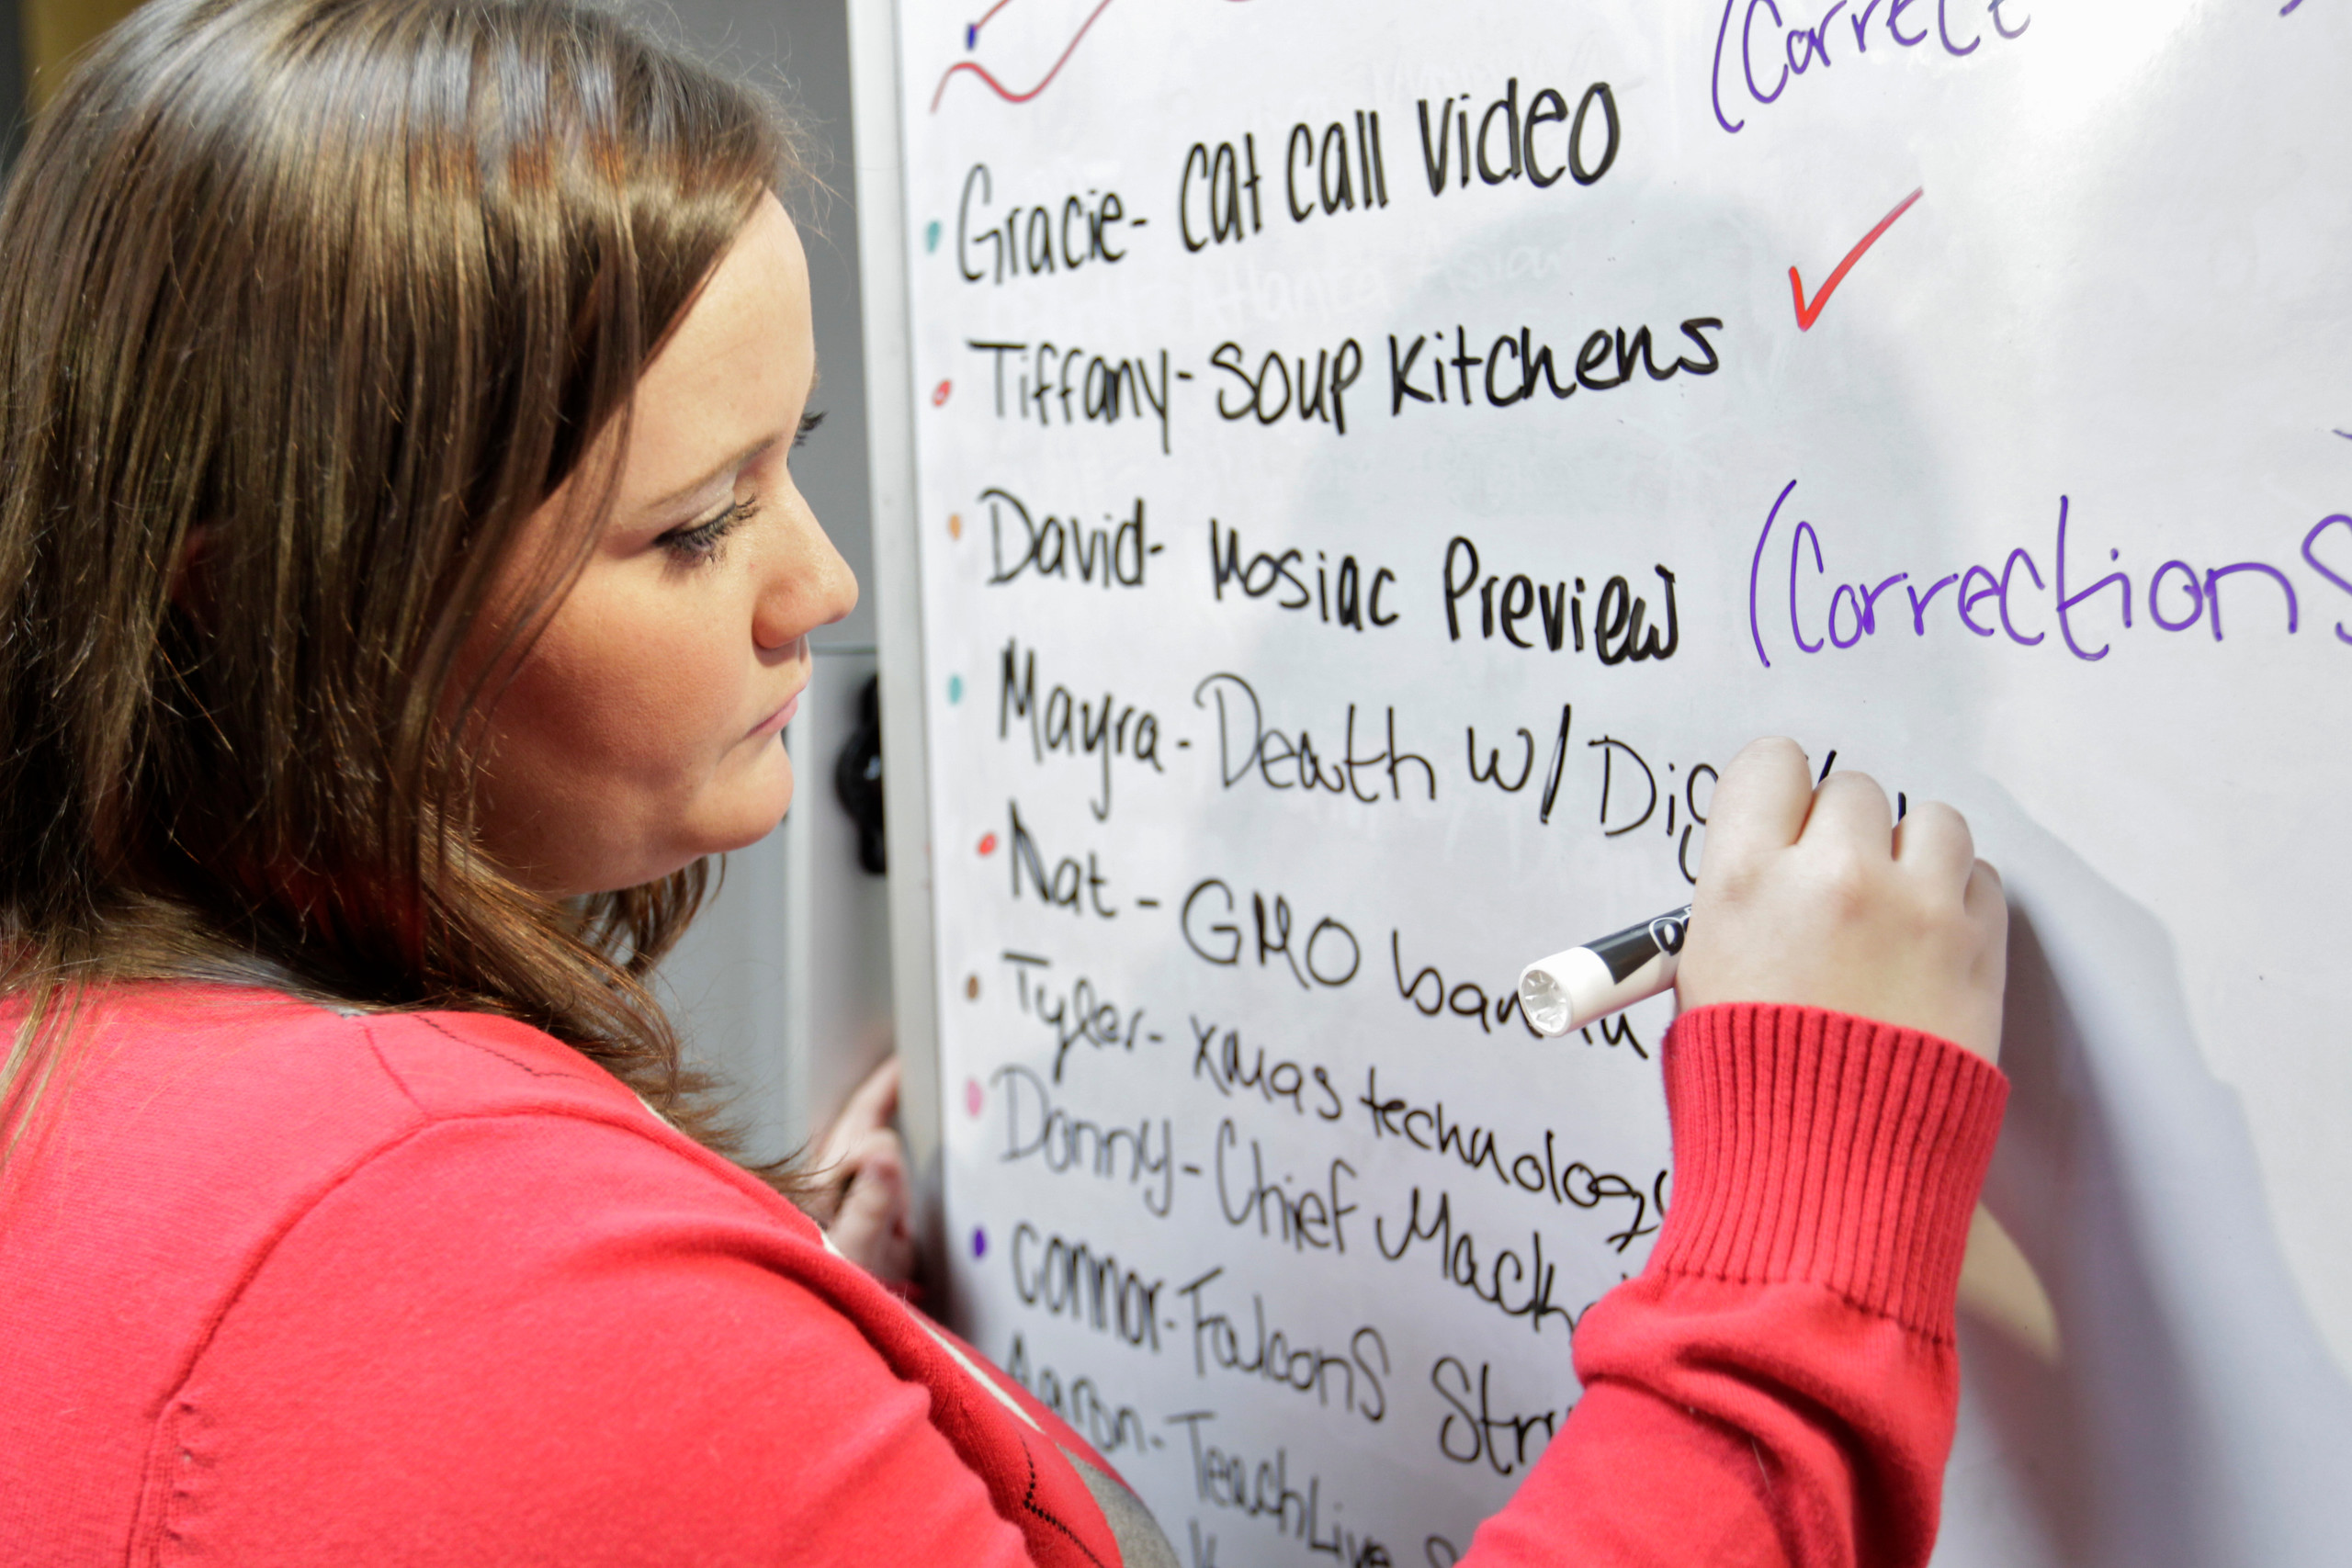 (Correct
Gracie- Cat Call Video
Tiffany- Soup Kitchens ✓
David- Mosiac Preview (Corrections
Mayra- Death w/ Dig
Nat - GMO
Tyler- Xmas technology
Donny- Chief
Connor- Falcons
Aaron- TeachLive